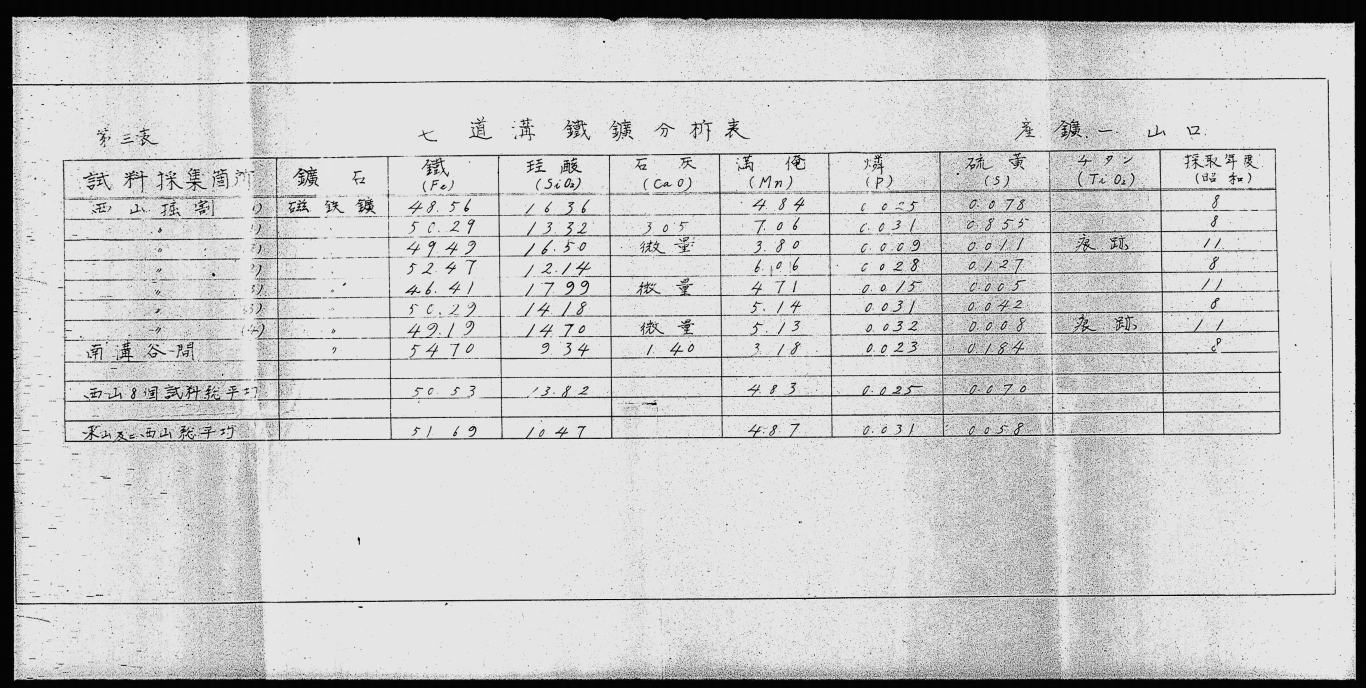 第三表 七道溝鐵鑛分析表 産鑛一 山口
試料採集箇所 鑛石 鐵(Fe) 珪酸(SiO₂) 石灰(CaO) 満俺(Mn) 燐(P) 硫黄(S) チタン(TiO₂) 採取年度(昭和)
西山掘割 磁鉄鑛 48.56 16.36 4.84 0.025 0.078 8
〃 〃 50.29 13.32 3.05 7.06 0.031 0.855 8
〃 〃 49.49 16.50 微量 3.80 0.009 0.011 痕跡 11
〃 〃 52.47 12.14 6.06 0.028 0.127 8
〃 (3) 〃 46.41 17.99 微量 4.71 0.015 0.005 11
〃 (3) 〃 50.29 14.18 5.14 0.031 0.042 8
〃 (4) 〃 49.19 14.70 微量 5.13 0.032 0.008 痕跡 11
南溝谷間 〃 54.70 9.34 1.40 3.18 0.023 0.184 8
西山8個試料総平均 50.53 13.82 4.83 0.025 0.070
東山及ビ西山総平均 51.69 10.47 4.87 0.031 0.058